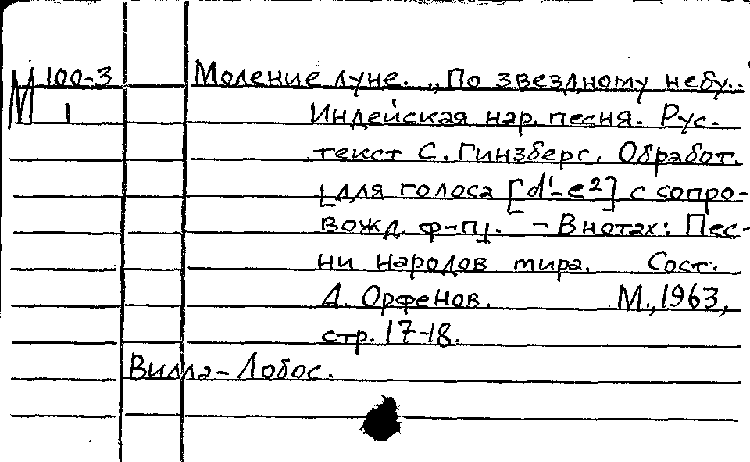 М 100-3 Моление луне. „По звездному небу.."
1 Индейская нар. песня. Рус.
текст С. Гинзберг. Обработ.
[для голоса [d¹-e²] с сопро-
вожд. ф-п]. - В нотах: Пес-
ни народов мира. Сост.
А. Орфенов. М., 1963,
стр. 17-18.
Вилла-Лобос.